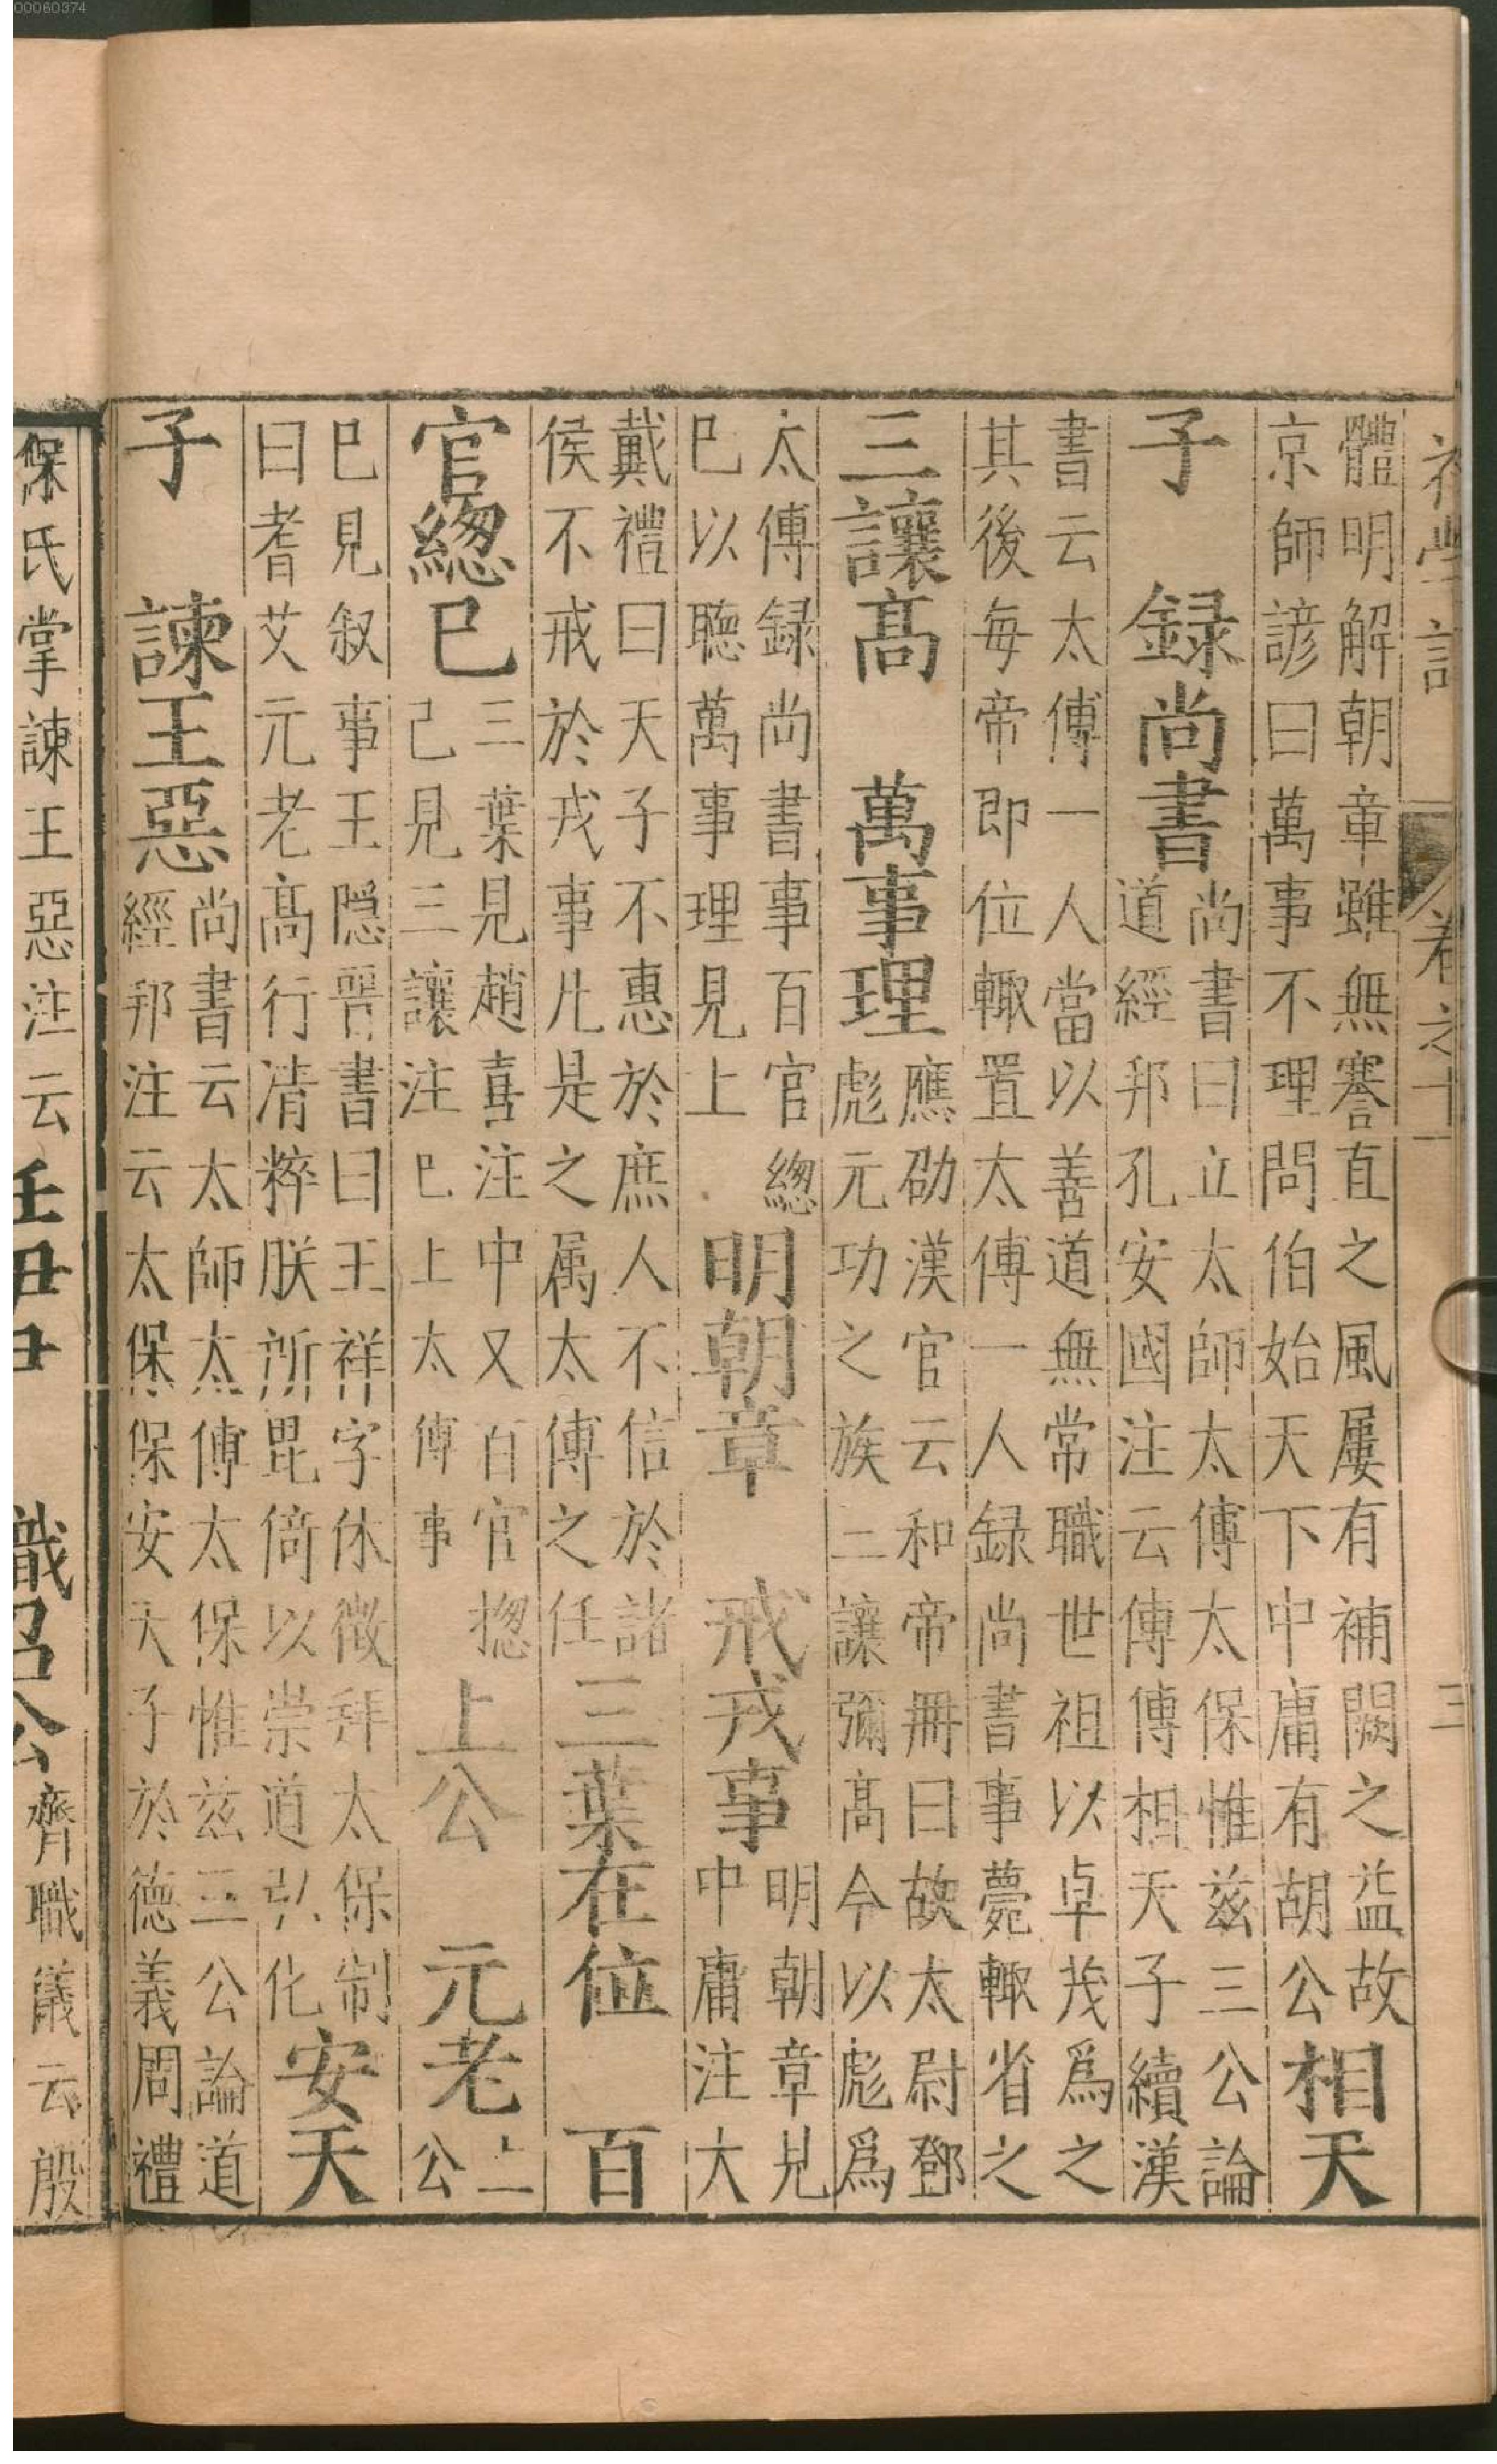 00060374
初學記 卷之十一 三
體明解朝章雖無謇直之風屢有補闕之益故
京師諺曰萬事不理問伯始天下中庸有胡公
相天
子 録尚書
尚書曰立太師太傅太保惟兹三公論
道經邦孔安國注云傅傅相天子續漢
書云太傅一人當以善道無常職世祖以卓茂爲之
其後每帝即位輙置太傅一人録尚書事薨輙省之
三讓髙 萬事理
應劭漢官云和帝冊曰故太尉鄧
彪元功之族三讓彌髙今以彪爲
太傅録尚書事百官緫
巳以聽萬事理見上
明朝章 戒戎事
明朝章見
中庸注大
戴禮曰天子不惠於庶人不信於諸
侯不戒於戎事凡是之属太傅之任
三葉在位 百
官緫巳
三葉見趙喜注中又百官揔
己見三讓注巳上太傅事
上公 元老
上
公
巳見叙事王隠晉書曰王祥字休徴拜太保制
曰耆艾元老髙行清粹朕所毘倚以崇道弘化
安天
子 諫王惡
尚書云太師太傅太保惟兹三公論道
經邦注云太保保安天子於德義周禮
保氏掌諫王惡注云
齊職儀云殷